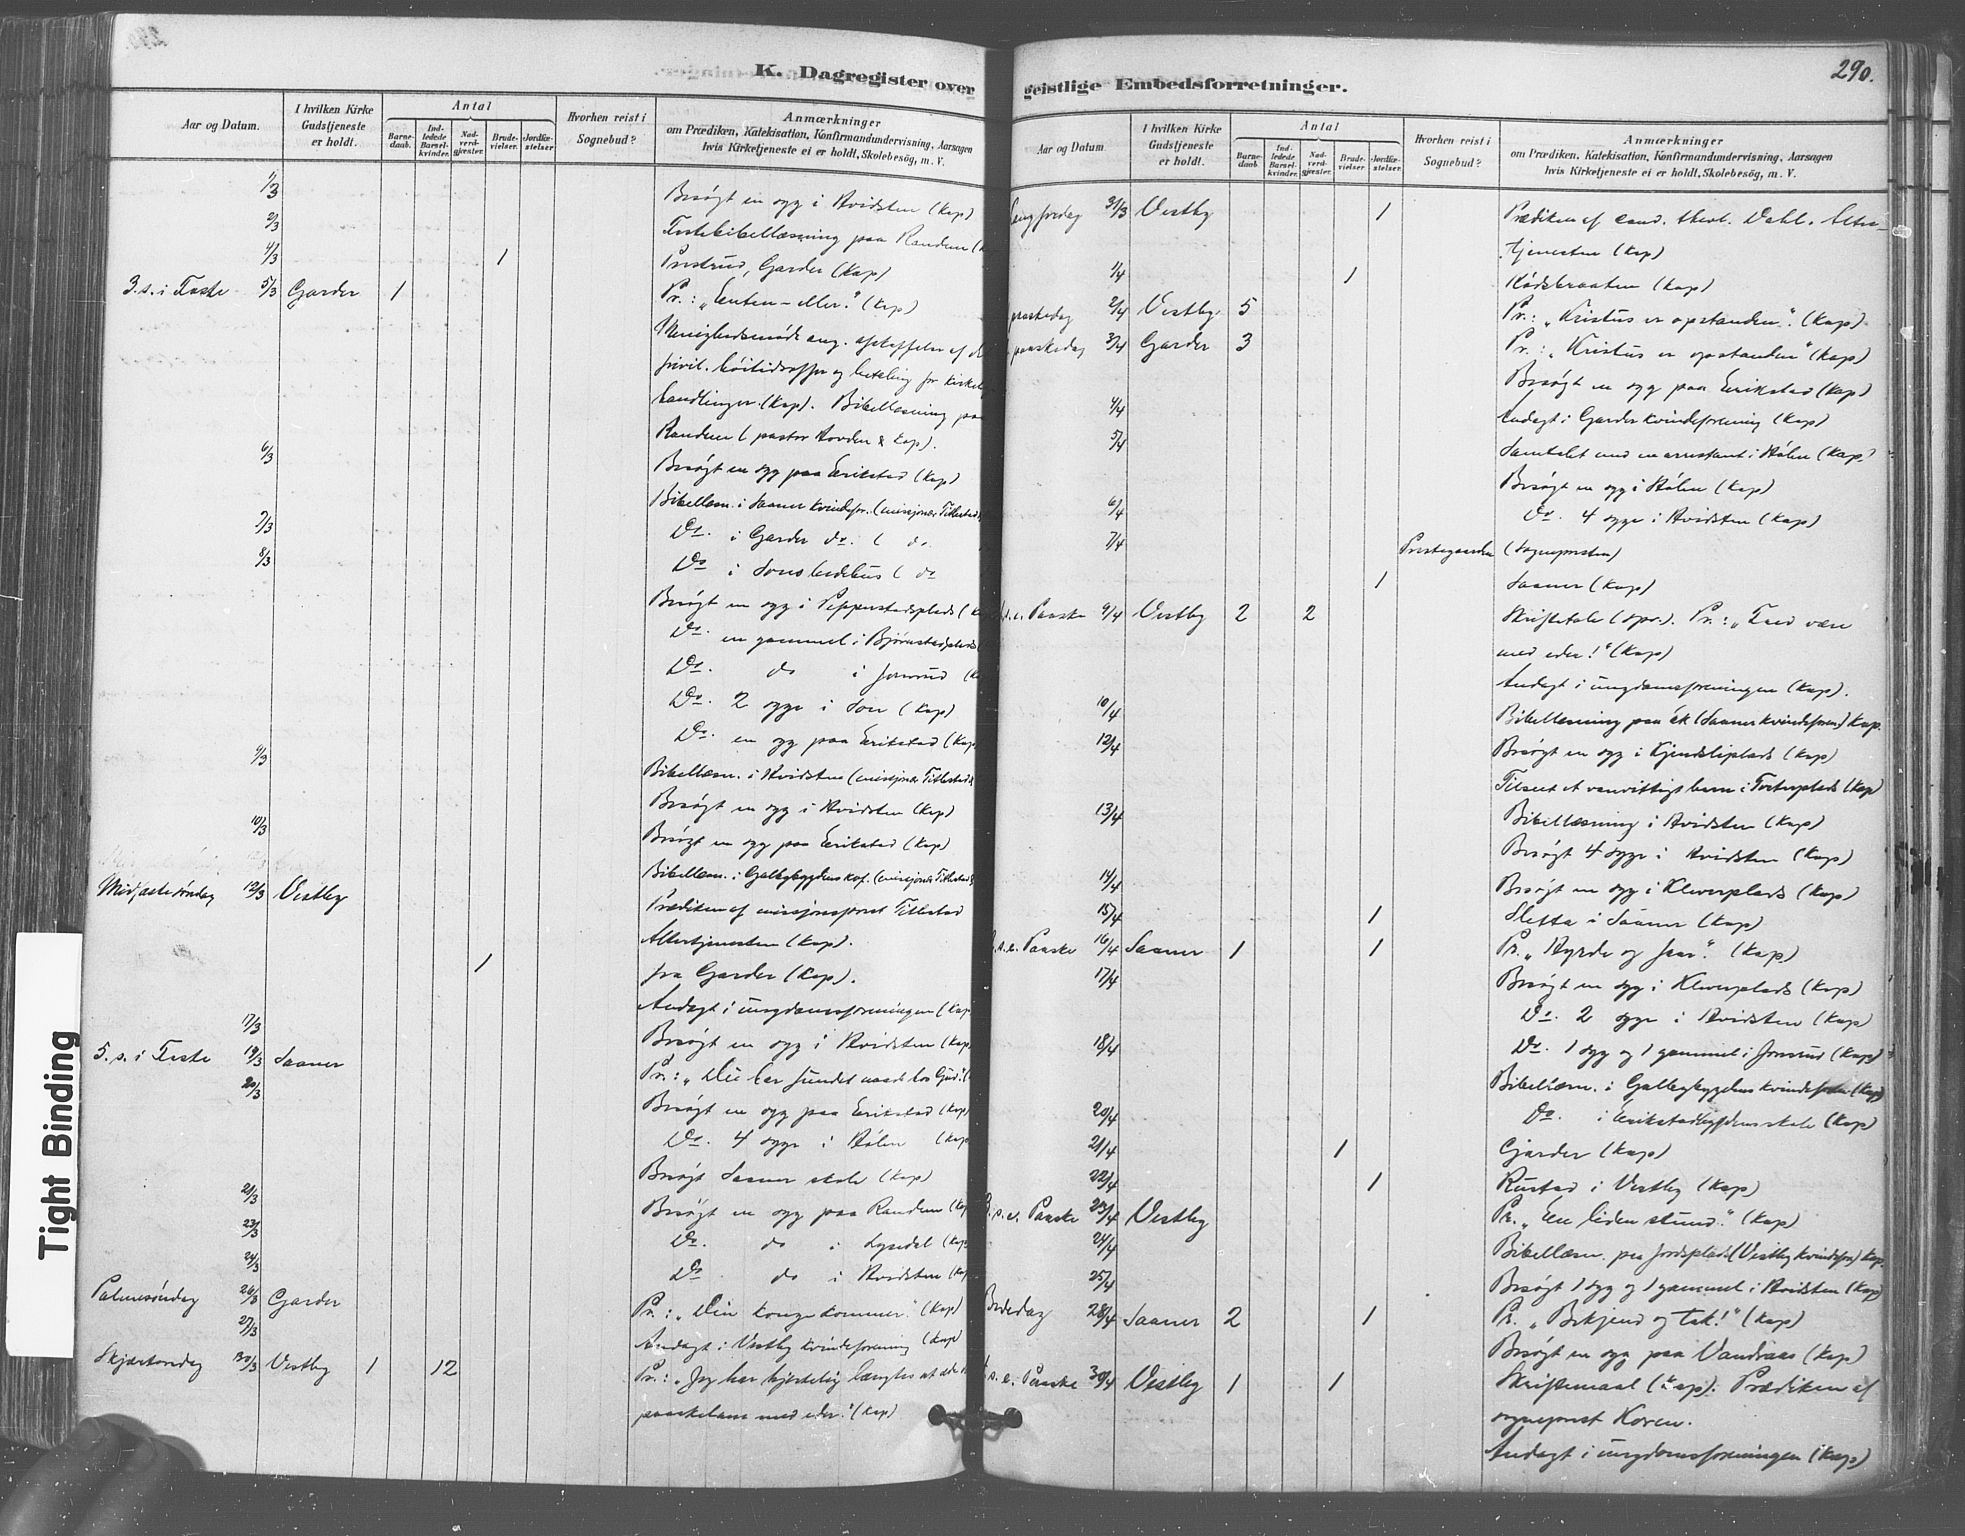 290.
K. Dagregister over
Aar og Datum.
I hvilken Kirke Gudstjeneste er holdt.
Antal
Barnedaab.
Indledede Barselkvinder.
Nadverdgjæster.
Brudevielser.
Jordfæstelser
Hvorhen reist i Sognebud?
Anmærkninger
om Prædiken, Katekisation, Konfirmandundervisning, Aarsagen
hvis Kirketjeneste ei er holdt, Skolebesøg, m. V.
1/3 Besøgt en syg i Hvidsten (Kap)
2/3 Fastebibellæsning paa Randem
4/3 1 Prestrud, Garder (Kap)
3. s. i Faste 5/3 Garder 1 Pr.: "Enten-eller." (Kap)
Menighedsmøde ang. afskaffelse af
frivil. høitidsoffer og betaling for kirkel.
handlinger. (Kap). Bibellæsning paa
Randem (pastor Hovden & Kap).
6/3 Besøgt en syg paa Erikstad (Kap)
Bibellæsn. i Saaner kvindefor. (missjonær Tittestad
7/3 Do. i Garder do. ( do.
8/3 Do i Sons bedehus ( do
Besøgt en syg i Pepperstadplads
Do. en gammel i Bjørnstadplads
Do. do i Jonsrud
Do. 2 syge i Son (Kap)
Do. en syg paa Erikstad (Kap
9/3 Bibellæsn. i Hvidsten (missjonær Tittestad
Besøgt en syg i Hvidsten (Kap)
10/3 Besøgt en syg paa Erikstad (Kap)
Bibellæsn. i Galbybygdens kvf. (missjonær Tittestad
Midfastesøndag 12/3 Vestby Prædiken af missjonsprest Tittestad
Altertjenesten (Kap).
1 fra Garder (Kap).
Andagt i ungdomsforeningen (Kap
17/3 Besøgt en syg i Hvidsten (Kap
5. s. i Faste 19/3 Saaner Pr.: "Du har fundet naade hos Gud."
20/3 Besøgt en syg paa Erikstad (Kap)
Do. 4 syge i Hølen (Kap
Besøgt Saaner skole (Kap)
21/3 Besøgt en syg paa Randem (Kap
23/3 Do. do i Lysedal (Kap
24/3 Do do i Hvidsten (Kap
Palmesøndag 26/3 Garder Pr.: "Din konge kommer." (Kap)
27/3 Andagt i Vestby kvindeforening (Kap)
Skjærtorsdag 30/3 Vestby 1 12 Pr.: "Jeg har hjertelig længtes at æde
paaskelam med eder." (Kap)
geistlige Embedsforretninger.
Aar og Datum
I hvilken Kirke Gudstjeneste er holdt.
Antal
Barnedaab
Indledede Barselkvinder.
Nadverdgjæster.
Brudevielser
Jordfæstelser.
Hvorhen reist i Sognebud?
Anmærkninger
om Prædiken, Katekisation, Konfirmandundervisning, Aarsagen
hvis Kirketjeneste ei er holdt, Skolebesøg, m. V.
Langfredag 31/3 Vestby 1 Prædiken af cand. theol. Dahl. Alter-
tjenesten (Kap)
1/4 1 (Kap)
paaskedag 2/4 Vestby 5 Pr.: "Kristus er opstanden." (Kap)
paaskedag 3/4 Garder 3 Pr.: "Kristus er opstanden" (Kap)
Besøgt en syg paa Erikstad (Kap)
4/4 Andagt i Garder kvindeforening (Kap)
5/4 Samtalet med en arrestant i Hølen (Kap.)
Besøgt en syg i Hølen (Kap)
6/4 Do. 4 syge i Hvidsten (Kap)
7/4 Prestegaarden (Sognepresten)
1 Saaner (Kap)
s. e. Paaske 9/4 Vestby 2 2 Skriftetale (spr.). Pr.: "Fred være
med eder!" (Kap)
Andagt i ungdomsforeningen (Kap).
10/4 Bibellæsning paa Ek (Saaner kvindeforen) Kap.
12/4 Besøgt en syg i Kjendsliplads (Kap)
Tilseet et vanvittigt barn i Torterplads (Kap)
13/4 Bibellæsning i Hvidsten (Kap)
Besøgt 4 syge i Hvidsten (Kap)
14/4 Besøgt en syg i Kleverplads (Kap)
15/4 1 Sletta i Saaner (Kap)
s. e. Paaske 16/4 Saaner 1 1 Pr. "Hyrde og faar." (Kap)
17/4 Besøgt en syg i Kleverplads (Kap)
Do. 2 syge i Hvidsten (Kap)
18/4 Do. 1 syg og 1 gammel i Jonsrud (Kap)
Bibellæsn. i Galbybygdens kvindefor. (Kap)
20/4 Do. i Erikstadbygdens skole (Kap)
21/4 1 Garder (Kap)
22/4 1 Rustad i Vestby (Kap)
s. e. Paaske 23/4 Vestby Pr. "En liden stund." (Kap)
24/4 Bibellæsn. paa Jordsplads (Vestby kvindefor) Kap.
25/4 Besøgt 1 syg og 1 gammel i Hvidsten (Kap)
Bededag 28/4 Saaner 2 1 Pr. "Bekjend og tak!" (Kap)
Besøgt en syg paa Vandraas (Kap)
s. e. Paaske 30/4 Vestby 1 1 Skriftemaal (Kap). Prædiken af
sogneprest Koren.
Andagt i ungdomsforeningen (Kap)
Tight Binding